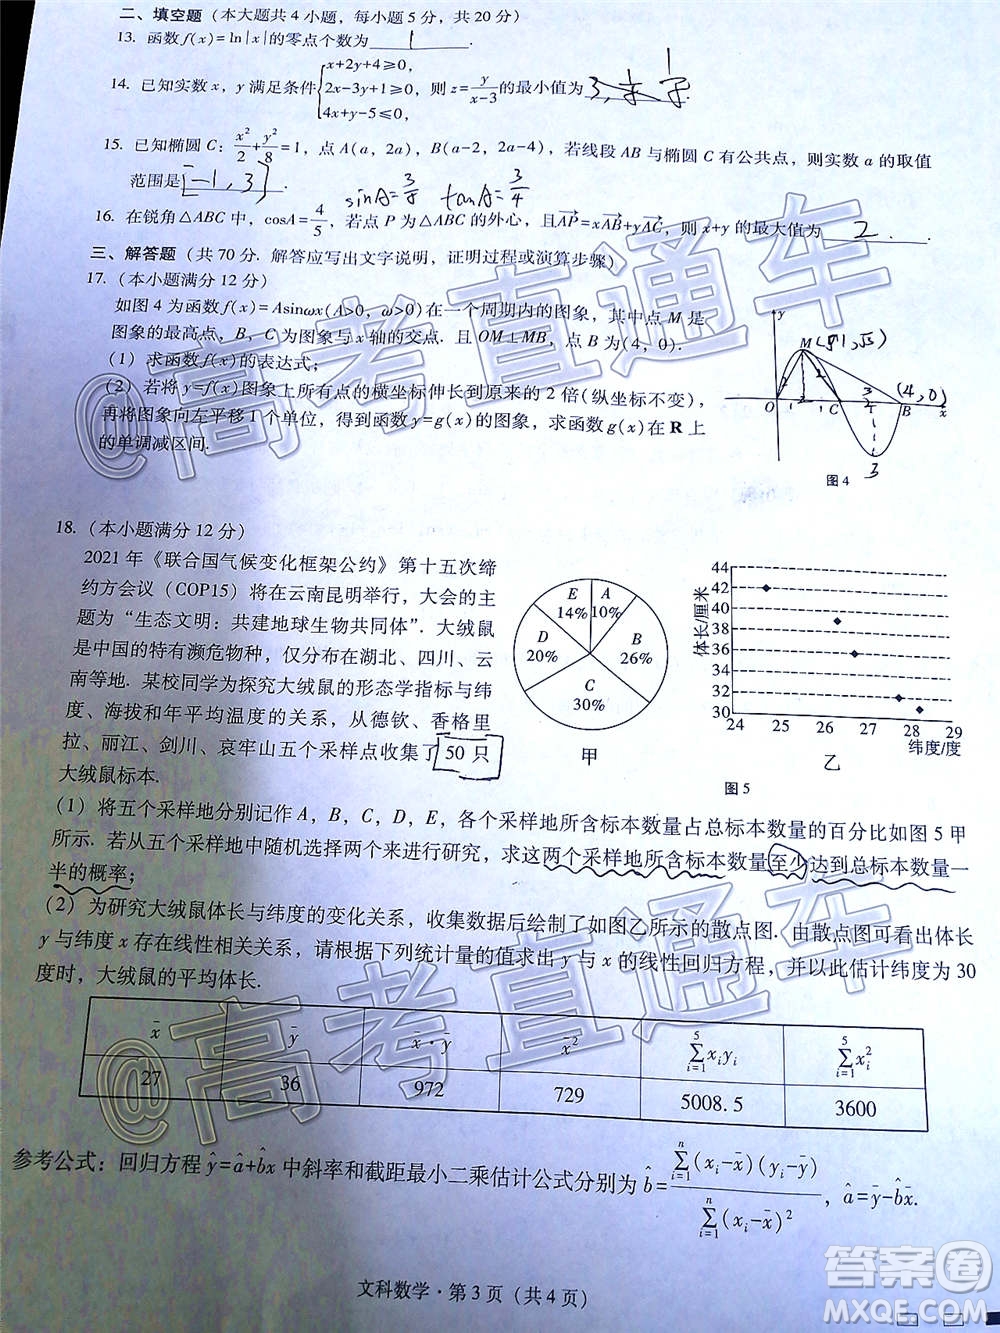 二、填空题（本大题共4小题，每小题5分，共20分）
13. 函数f(x)=ln|x|的零点个数为 1
14. 已知实数x，y满足条件{x+2y+4≥0，2x-3y+1≥0，4x+y-5≤0，则z=y/(x-3)的最小值为
15. 已知椭圆C：x²/2+y²/8=1，点A(a，2a)，B(a-2，2a-4)，若线段AB与椭圆C有公共点，则实数a的取值
范围是 [-1,3]
sinA=3/5 tanA=3/4
16. 在锐角△ABC中，cosA=4/5，若点P为△ABC的外心，且AP=xAB+yAC，则x+y的最大值为 2 .
三、解答题（共70分. 解答应写出文字说明，证明过程或演算步骤）
17.（本小题满分12分）
如图4为函数f(x)=Asinωx(A>0，ω>0)在一个周期内的图象，其中点M是
图象的最高点，B为图象与x轴的交点. 且OM⊥MB，点B为(4，0).
（1）求函数f(x)的表达式；
（2）若将y=f(x)图象上所有点的横坐标伸长到原来的2倍（纵坐标不变），
再将图象向左平移1个单位，得到函数y=g(x)的图象，求函数g(x)在R上
的单调减区间.
y
M
(4,0)
O
B
x
3
图4
18.（本小题满分12分）
2021年《联合国气候变化框架公约》第十五次缔
约方会议（COP15）将在云南昆明举行，大会的主
题为“生态文明：共建地球生物共同体”. 大绒鼠
是中国的特有濒危物种，仅分布在湖北、四川、云
南等地. 某校同学为探究大绒鼠的形态学指标与纬
度、海拔和年平均温度的关系，从德钦、香格里
拉、丽江、剑川、哀牢山五个采样点收集了50只
大绒鼠标本.
E 14%
A 10%
D 20%
B 26%
C 30%
甲
体长/厘米
44
42
40
38
36
34
32
30
24 25 26 27 28 29
纬度/度
乙
图5
（1）将五个采样地分别记作A，B，C，D，E，各个采样地所含标本数量占总标本数量的百分比如图5甲
所示. 若从五个采样地中随机选择两个来进行研究，求这两个采样地所含标本数量至少达到总标本数量一
半的概率；
（2）为研究大绒鼠体长与纬度的变化关系，收集数据后绘制了如图乙所示的散点图. 由散点图可看出体长
y与纬度x存在线性相关关系，请根据下列统计量的值求出y与x的线性回归方程，并以此估计纬度为30
度时，大绒鼠的平均体长.
x̄ ȳ x̄·ȳ x̄² ∑(i=1→5)xᵢyᵢ ∑(i=1→5)xᵢ²
27 36 972 729 5008.5 3600
参考公式：回归方程ŷ=â+b̂x中斜率和截距最小二乘估计公式分别为b̂=∑(i=1→n)(xᵢ-x̄)(yᵢ-ȳ)/∑(i=1→n)(xᵢ-x̄)²，â=ȳ-b̂x̄.
文科数学·第3页（共4页）
@高考直通车
@高考直通车
答案圈
MXQE.COM